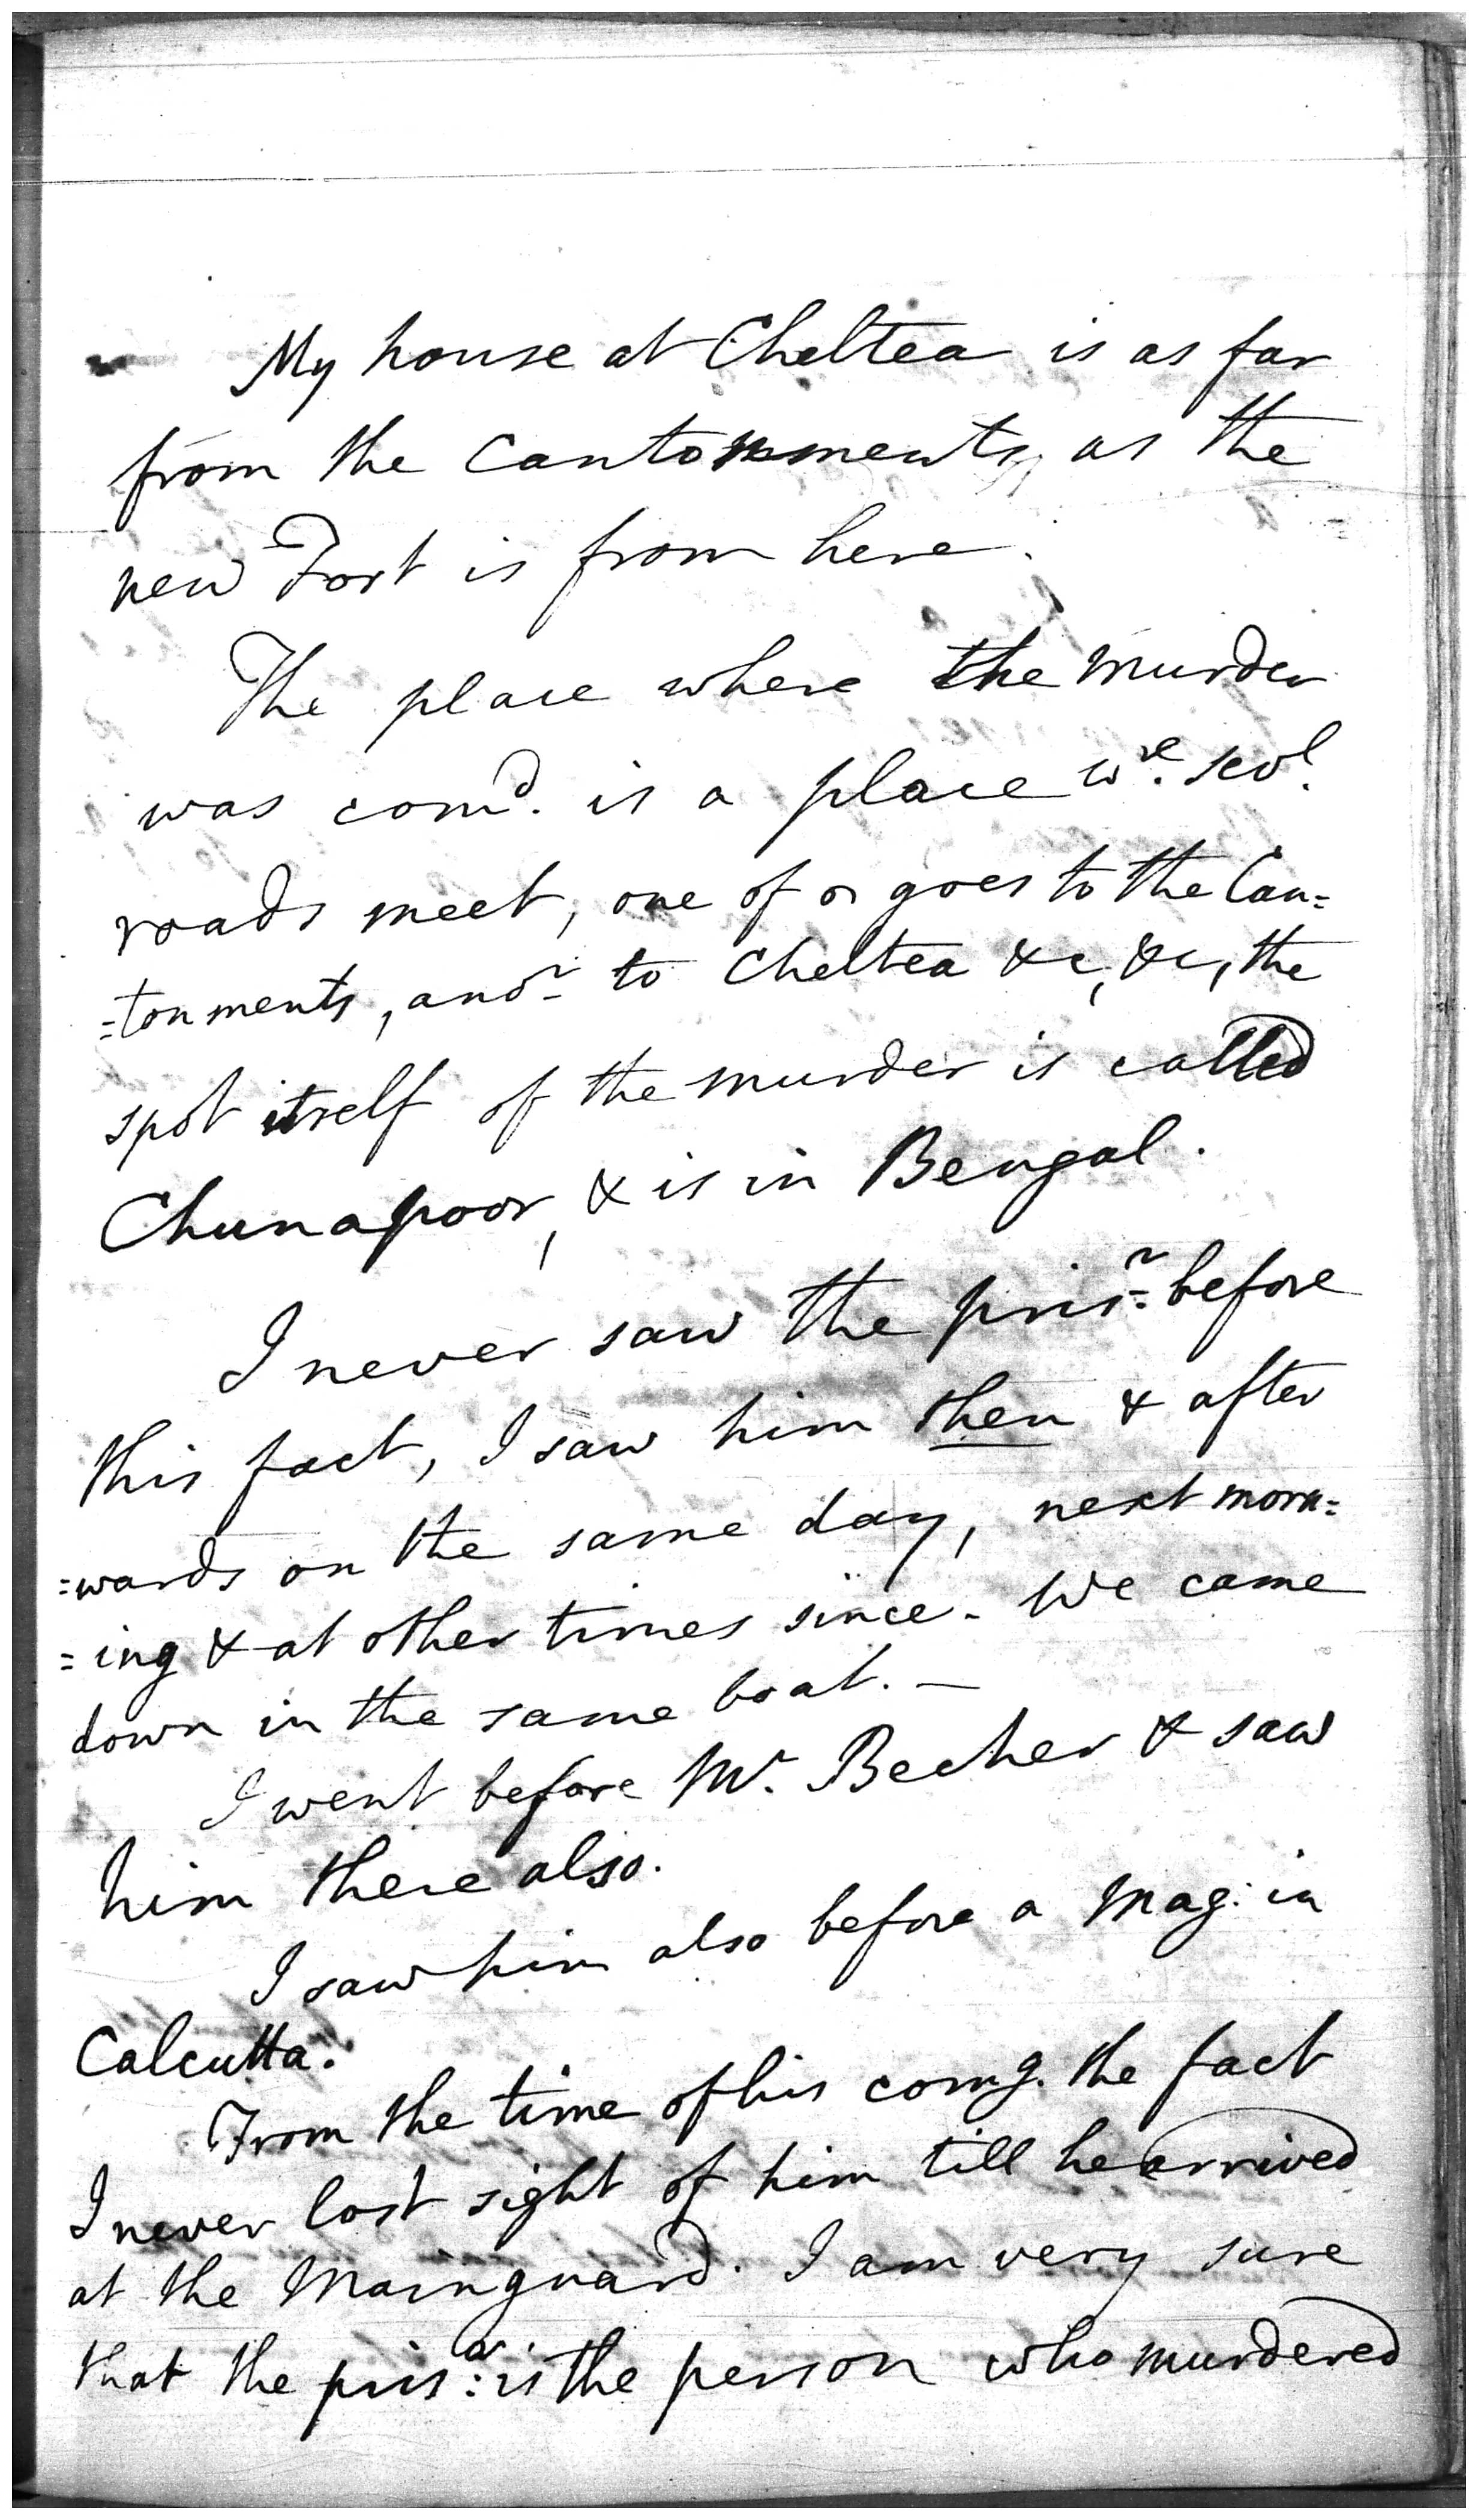 My house at Cheltea is as far
from the Cantonments, as the
new Fort is from here.
The place where the murder
was com^d. is a place w^re. sev^l.
roads meet, one of goes to the Can=
=tonments, ano^r. to Cheltea &c, &c, the
spot itself of the murder is called
Chunapoor, & is in Bengal.
I never saw the pris^r. before
this fact, I saw him then & after
=wards on the same day, next morn=
=ing & at other times since. We came
down in the same boat. —
I went before Mr. Becher & saw
him there also.
I saw him also before a Mag: in
Calcutta.
From the time of his comg. the fact
I never lost sight of him till he arrived
at the Mainguard. I am very sure
that the pris^r: is the person who murdered